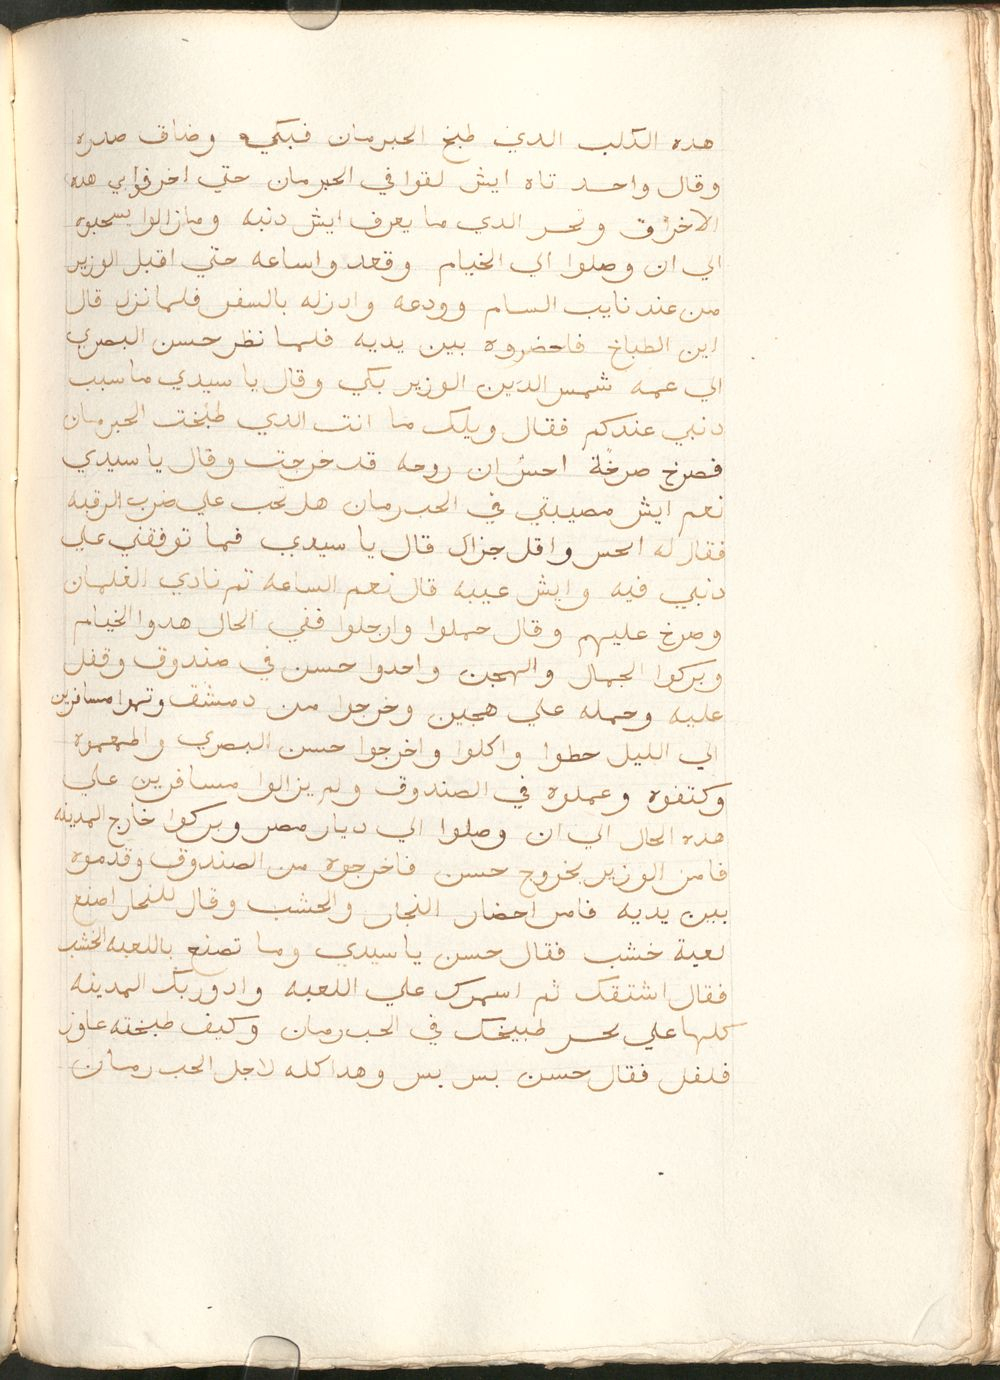 هده الكلب الدي طبخ الحبرمان فبكي وضاق صدره
وقال واحد تاه ايش لقوا في الحبرمان حتي اخرفوا بي هده
الاخراق وتحسر الدي ما يعرف ايش دنبه ومازالوا يسحبوه
الي ان وصلوا الي الخيام وقعدوا ساعه حتي اقبل الوزير
من عند نايب السام وودعه وادزله بالسفر فلما نزل قال
اين الطباخ فاحضروه بين يديه فلما نظر حسن البصري
الي عمه شمس الدين الوزير بكي وقال يا سيدي ما سبب
دنبي عندكم فقال ويلك ما انت الدي طبخت الحبرمان
فصرخ صرخة احس ان روحه قد خرجت وقال يا سيدي
نعم ايش مصيبتي في الحب رمان هل تحب علي ضرب الرقبه
فقال له احس واقل جزاك قال يا سيدي فما توفقني علي
دنبي فيه وايش عيبه قال نعم الساعه تم نادي الغلمان
وصرخ عليهم وقال حملوا وارحلوا ففي الحال هدوا الخيام
وبركوا الجمال والهجن واحدوا حسن في صندوق وقفل
عليه وحمله علي هجين وخرجوا من دمشق وتموا مسافرين
الي الليل حطوا واكلوا واخرجوا حسن البصري واطعموه
وكتفوه وعملوه في الصندوق ولم يزالوا مسافرين علي
هده الحال الي ان وصلوا الي ديار مصر وبركوا خارج المدينه
فامر الوزير بخروج حسن فاخرجوه من الصندوق وقدموه
بين يديه فامر احضار النجار والخشب وقال للنجار اصنع
لعبة خشب فقال حسن يا سيدي وما تصنع باللعبه الخشب
فقال اشتقك ثم اسمرك علي اللعبه وادور بك المدينه
كلها علي نحس طبيخك في الحب رمان وكيف طبخته عاوز
فلفل فقال حسن بس بس وهدا كله لاجل الحب رمان